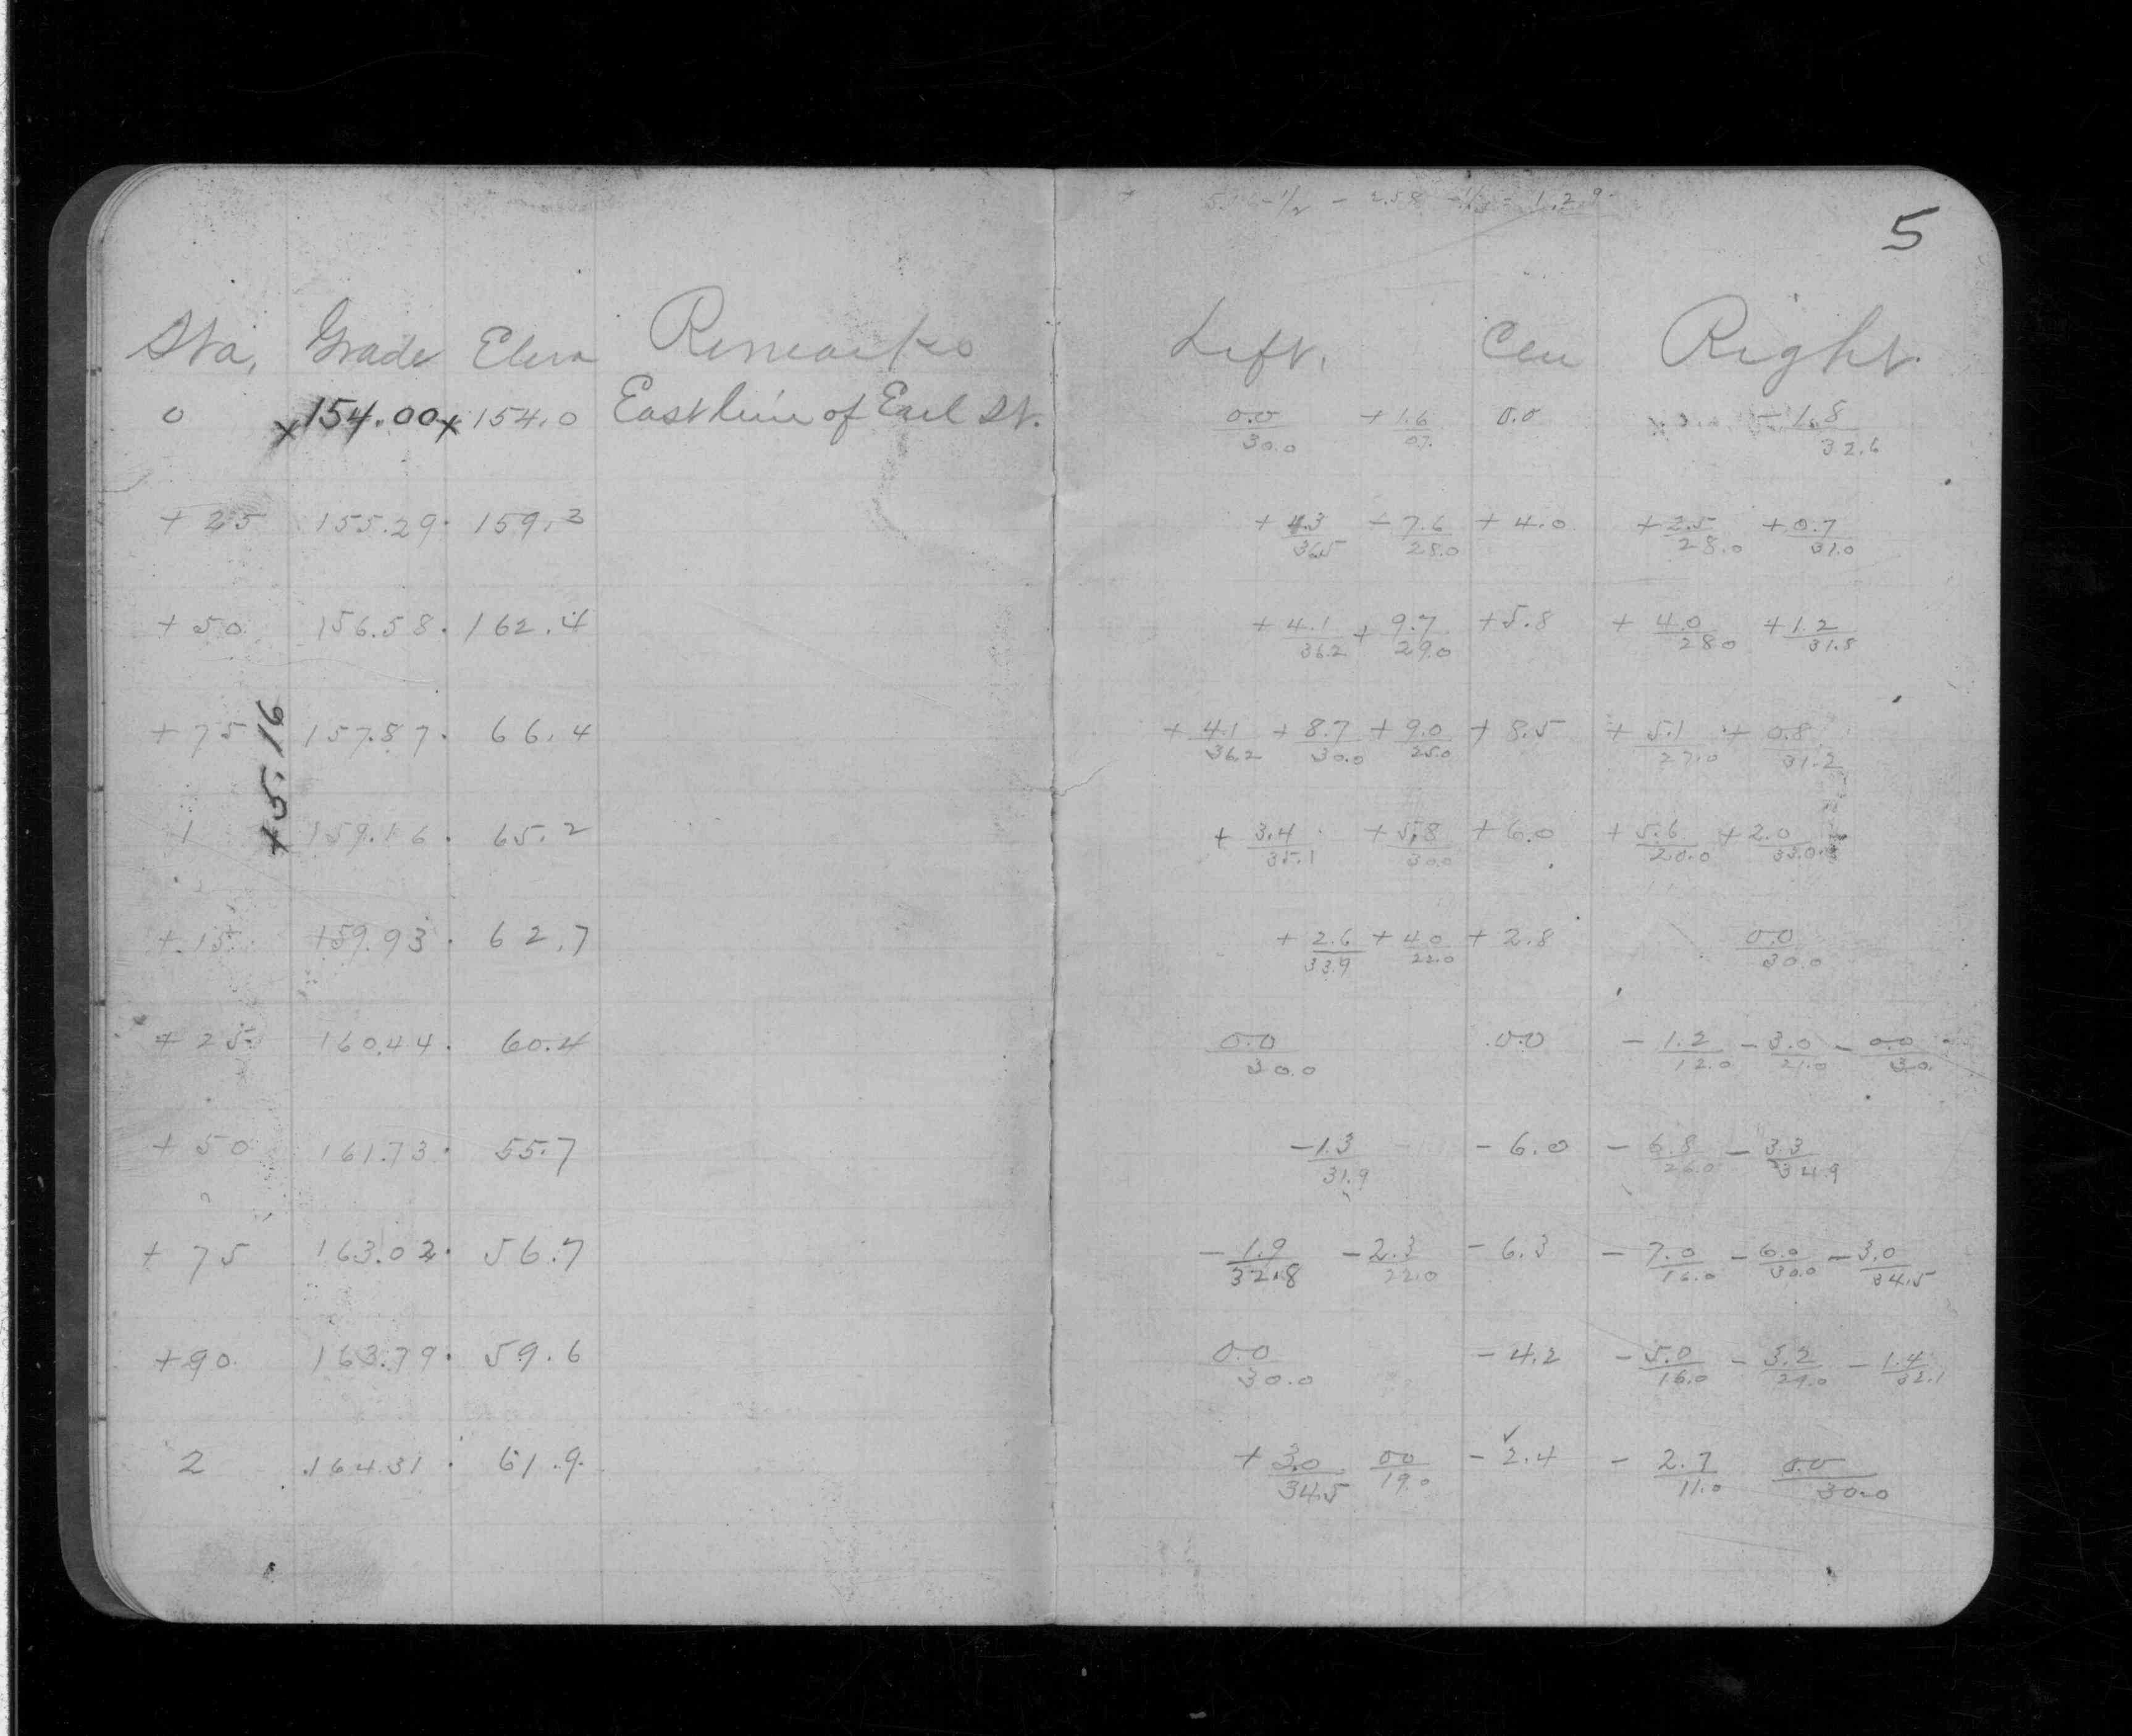 5
Sta. Grade Elev Remarks Left. Cen Right.
0 x154.00x 154.0 East line of Earl St. 0.0/30.0 +1.6/07. 0.0 -1.8/32.6
+25 155.29. 159.3 +4.3/36.5 +7.6/28.0 +4.0 +2.5/28.0 +0.7/31.0
+50 156.58. 162.4 +4.1/36.2 +9.7/29.0 +5.8 +4.0/28.0 +1.2/31.8
+75 157.87. 66.4 +4.1/36.2 +8.7/30.0 +9.0/25.0 +8.5 +5.1/27.0 +0.8/31.2
+5.16
1 159.16. 65.2 +3.4/35.1 +5.8/30.0 +6.0 +5.6/20.0 +2.0/33.0
+15 159.93. 62.7 +2.6/33.9 +4.0/22.0 +2.8 0.0/30.0
+25 160.44. 60.4 0.0/30.0 0.0 -1.2/12.0 -3.0/21.0 -0.0/30.
+50 161.73. 55.7 -1.3/31.9 -6.0 -6.8/26.0 -3.3/34.9
+75 163.02. 56.7 -1.9/32.8 -2.3/22.0 -6.3 -7.0/16.0 -6.0/30.0 -3.0/34.5
+90 163.79. 59.6 0.0/30.0 -4.2 -5.0/16.0 -3.2/29.0 -1.4/32.1
2 164.31. 61.9. +3.0/34.5 00/19.0 -2.4 -2.7/11.0 0.0/30.0